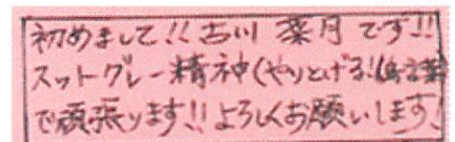 初めまして!! 古川 菜月 です!!
スットグレー精神(やりとげる!
で頑張ります!! よろしくお願いします!